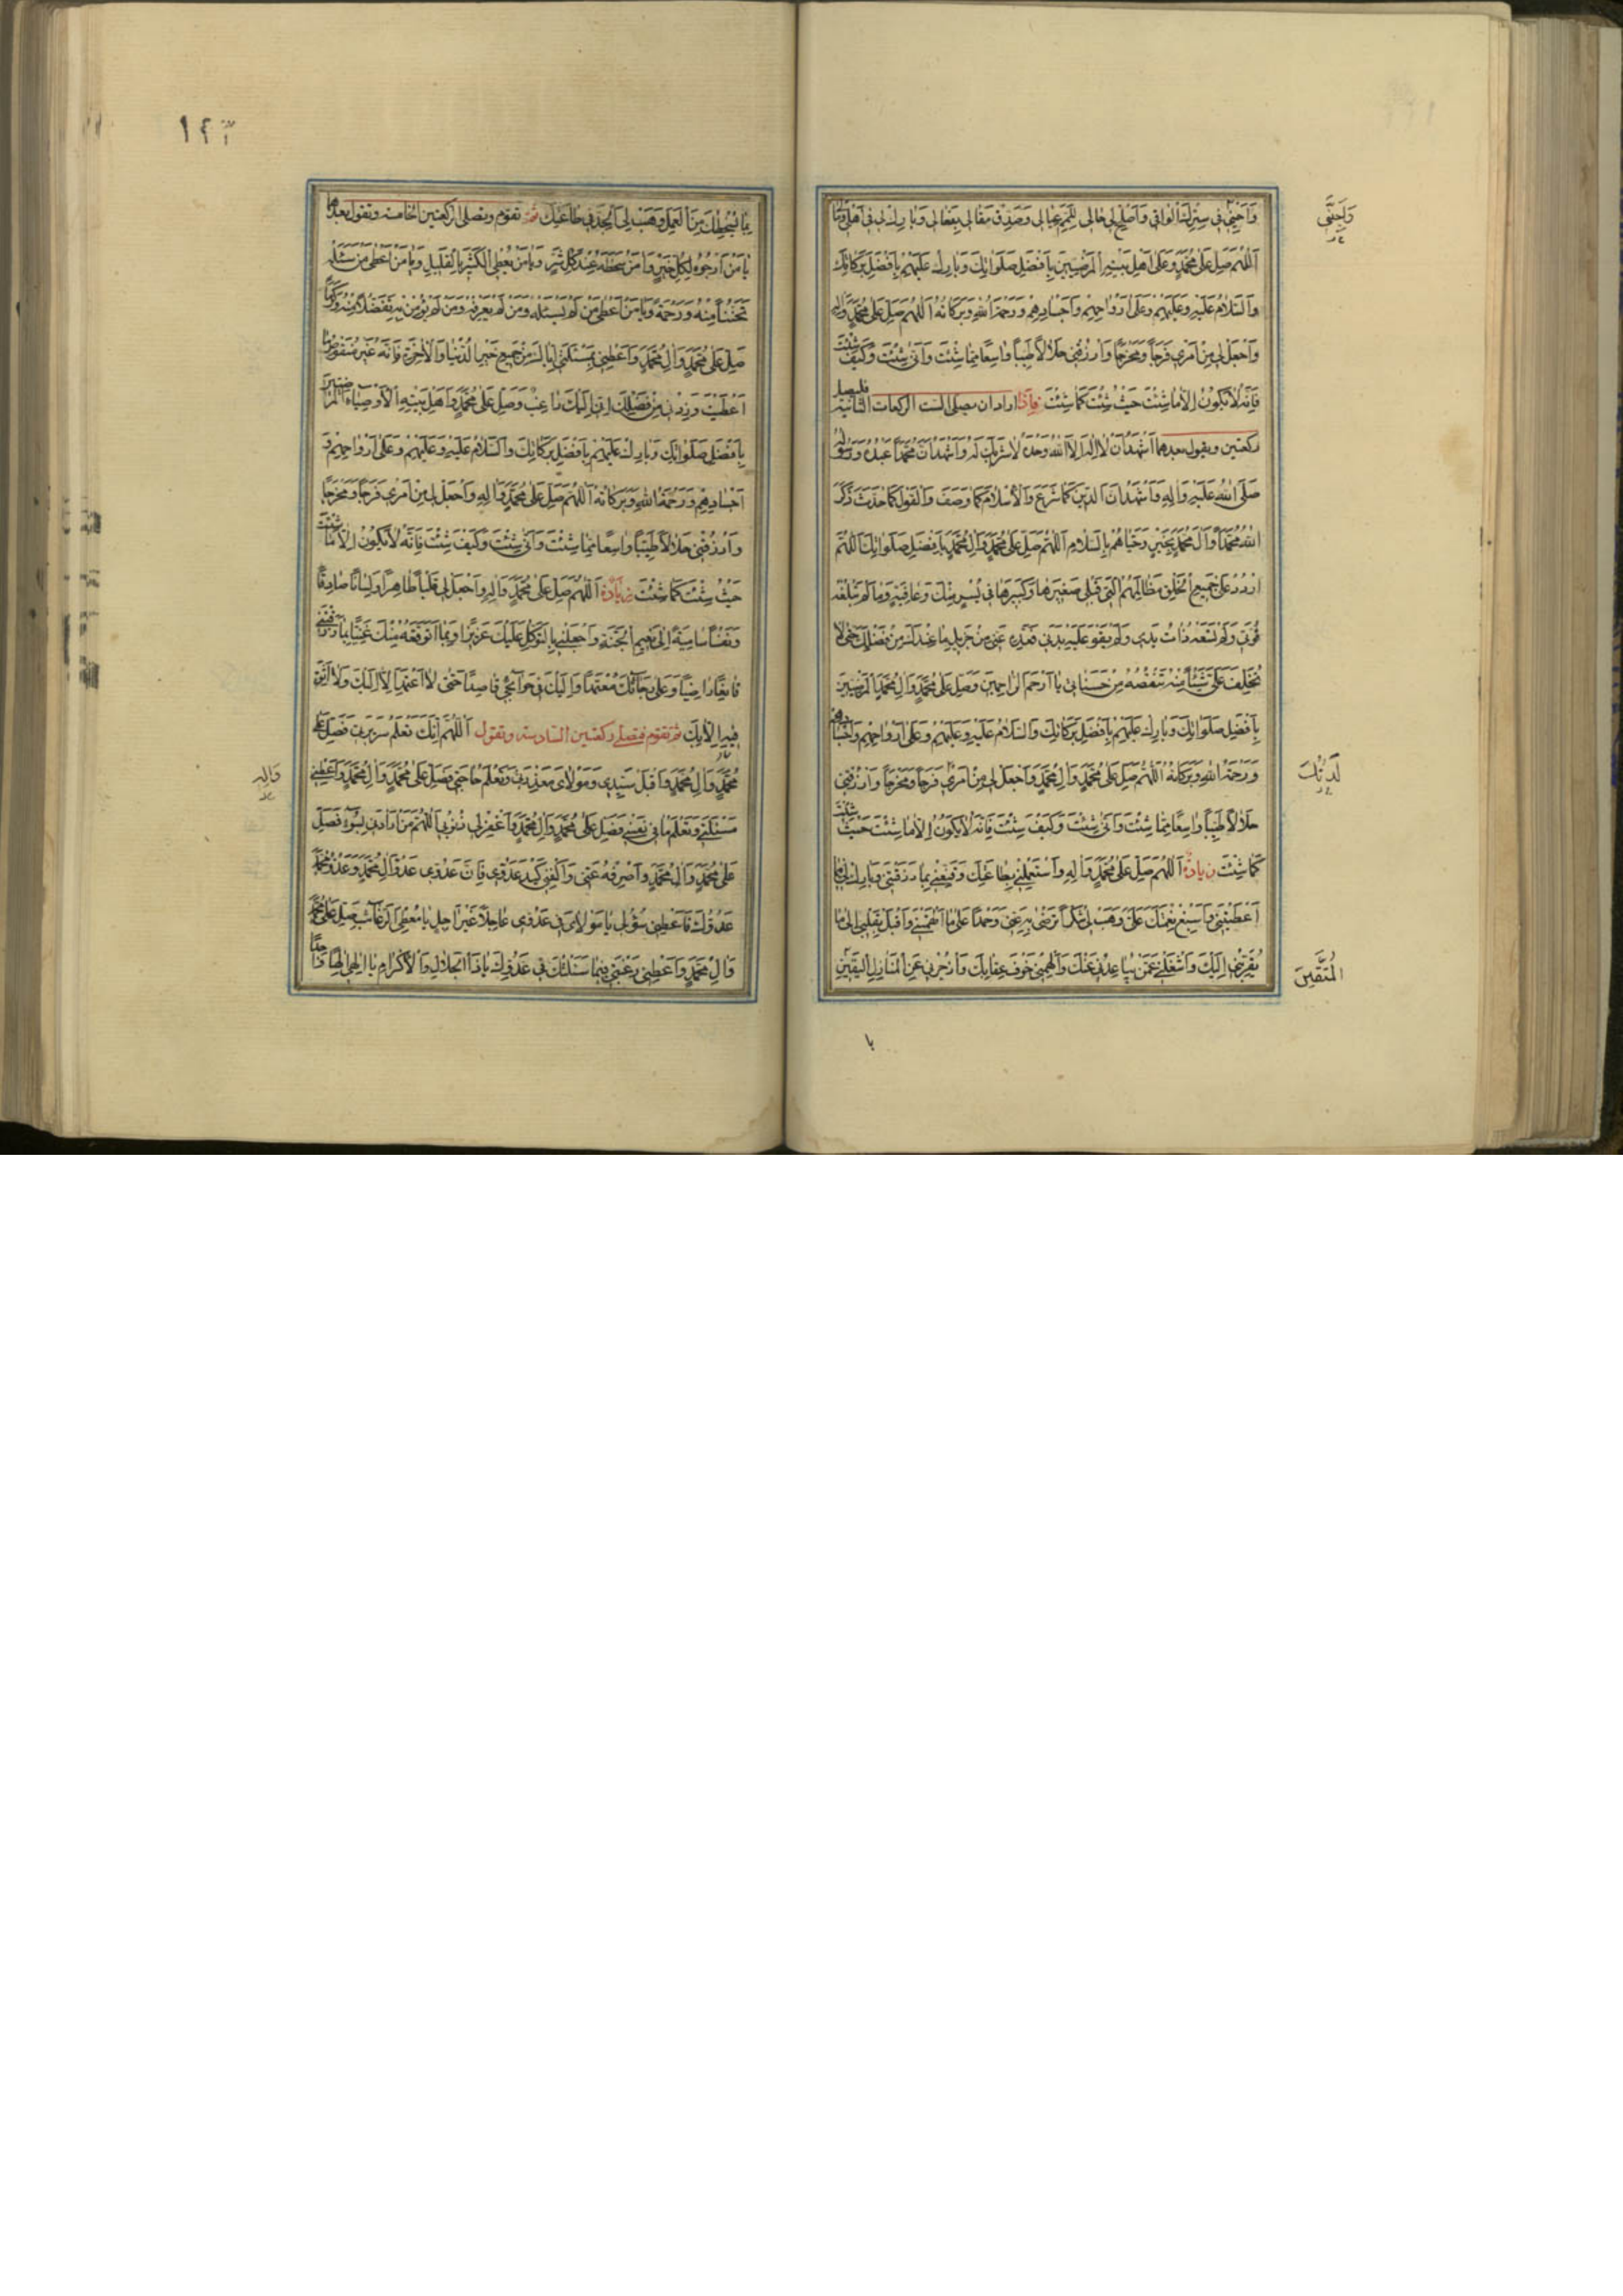 وَاجْنِنِي فِي سِتْرِكَ الْوَاقِي وَأَصْلِحْ لِي حَالِي لِلَمِّ عِيَالِي وَصَدِّقْ مَقَالِي بِفِعَالِي وَبَارِكْ لِي فِي أَهْلِي وَمَالِي
اَللّٰهُمَّ صَلِّ عَلَى مُحَمَّدٍ وَعَلَى أَهْلِ بَيْتِهِ الْمَرْضِيِّينَ بِأَفْضَلِ صَلَوَاتِكَ وَبَارِكْ عَلَيْهِمْ بِأَفْضَلِ بَرَكَاتِكَ
وَالسَّلَامُ عَلَيْهِ وَعَلَيْهِمْ وَعَلَى أَرْوَاحِهِمْ وَأَجْسَادِهِمْ وَرَحْمَةُ اللهِ وَبَرَكَاتُهُ اَللّٰهُمَّ صَلِّ عَلَى مُحَمَّدٍ وَآلِهِ
وَاجْعَلْ لِي مِنْ أَمْرِي فَرَجًا وَمَخْرَجًا وَارْزُقْنِي حَلَالًا طَيِّبًا وَاسِعًا مِمَّا شِئْتَ وَأَنَّى شِئْتَ وَكَيْفَ شِئْتَ
فَإِنَّهُ لَا يَكُونُ إِلَّا مَا شِئْتَ حَيْثُ شِئْتَ كَمَا شِئْتَ فاذا اراد ان يصلي الست الركعات الثانية فليصل
ركعتين ويقول بعدهما أَشْهَدُ أَنْ لَا إِلٰهَ إِلَّا اللهُ وَحْدَهُ لَا شَرِيكَ لَهُ وَأَشْهَدُ أَنَّ مُحَمَّدًا عَبْدُهُ وَرَسُولُهُ
صَلَّى اللهُ عَلَيْهِ وَآلِهِ وَأَشْهَدُ أَنَّ الدِّينَ كَمَا شَرَعَ وَالْإِسْلَامَ كَمَا وَصَفَ وَالْقَوْلَ كَمَا حَدَّثَ ذَكَرَ
اللهُ مُحَمَّدًا وَآلَ مُحَمَّدٍ بِخَيْرٍ وَحَيَّاهُمْ بِالسَّلَامِ اَللّٰهُمَّ صَلِّ عَلَى مُحَمَّدٍ وَآلِ مُحَمَّدٍ بِأَفْضَلِ صَلَوَاتِكَ اَللّٰهُمَّ
ارْدُدْ عَلَى جَمِيعِ خَلْقِكَ مَظَالِمَهُمُ الَّتِي قِبَلِي صَغِيرَهَا وَكَبِيرَهَا فِي يُسْرٍ مِنْكَ وَعَافِيَةٍ وَمَا لَمْ تَبْلُغْهُ
قُوَّتِي وَلَمْ تَسَعْهُ ذَاتُ يَدِي وَلَمْ يَقْوَ عَلَيْهِ بَدَنِي فَأَدِّهِ عَنِّي مِنْ جَزِيلِ مَا عِنْدَكَ مِنْ فَضْلِكَ حَتَّى لَا
تُخَلِّفَ عَلَيَّ شَيْئًا مِنْهُ تَنْقُصُهُ مِنْ حَسَنَاتِي يَا أَرْحَمَ الرَّاحِمِينَ وَصَلِّ عَلَى مُحَمَّدٍ وَآلِ مُحَمَّدٍ الْمَرْضِيِّينَ
بِأَفْضَلِ صَلَوَاتِكَ وَبَارِكْ عَلَيْهِمْ بِأَفْضَلِ بَرَكَاتِكَ وَالسَّلَامُ عَلَيْهِ وَعَلَيْهِمْ وَعَلَى أَرْوَاحِهِمْ وَأَجْسَادِهِمْ
وَرَحْمَةُ اللهِ وَبَرَكَاتُهُ اَللّٰهُمَّ صَلِّ عَلَى مُحَمَّدٍ وَآلِ مُحَمَّدٍ وَاجْعَلْ لِي مِنْ أَمْرِي فَرَجًا وَمَخْرَجًا وَارْزُقْنِي
حَلَالًا طَيِّبًا وَاسِعًا مِمَّا شِئْتَ وَأَنَّى شِئْتَ وَكَيْفَ شِئْتَ فَإِنَّهُ لَا يَكُونُ إِلَّا مَا شِئْتَ حَيْثُ شِئْتَ
كَمَا شِئْتَ زيادة اَللّٰهُمَّ صَلِّ عَلَى مُحَمَّدٍ وَآلِهِ وَاسْتَعْمِلْنِي بِطَاعَتِكَ وَقَنِّعْنِي بِمَا رَزَقْتَنِي وَبَارِكْ لِي فِيمَا
أَعْطَيْتَنِي وَأَسْبِغْ نِعَمَكَ عَلَيَّ وَهَبْ لِي شُكْرًا تَرْضَى بِهِ عَنِّي وَحَمْدًا عَلَى مَا أَلْهَمْتَنِي وَأَقْبِلْ بِقَلْبِي إِلَى مَا
يُقَرِّبُنِي إِلَيْكَ وَاشْغَلْنِي عَمَّنْ يُبَاعِدُنِي عَنْكَ وَأَلْهِمْنِي خَوْفَ عِقَابِكَ وَازْجُرْنِي عَنِ الْمُنَى لِمَنَازِلِ الْيَقِينِ
لَدُنْكَ
الْمُتَّقِينَ
يا
بِمَا يُسْخِطُكَ مِنَ الْعَمَلِ وَهَبْ لِي الْجِدَّ فِي طَاعَتِكَ ثم تقوم وتصلي الركعتين الخامسة وتقول بعدها
يَا مَنْ أَرْجُوهُ لِكُلِّ خَيْرٍ وَآمَنُ سَخَطَهُ عِنْدَ كُلِّ شَرٍّ وَيَا مَنْ يُعْطِي الْكَثِيرَ بِالْقَلِيلِ وَيَا مَنْ أَعْطَى مَنْ سَئَلَهُ
تَحَنُّنًا مِنْهُ وَرَحْمَةً وَيَا مَنْ أَعْطَى مَنْ لَمْ يَسْئَلْهُ وَمَنْ لَمْ يَعْرِفْهُ وَمَنْ لَمْ يُؤْمِنْ بِهِ تَفَضُّلًا مِنْهُ وَكَرَمًا
صَلِّ عَلَى مُحَمَّدٍ وَآلِ مُحَمَّدٍ وَأَعْطِنِي بِمَسْئَلَتِي إِيَّاكَ مِنْ جَمِيعِ خَيْرِ الدُّنْيَا وَالْآخِرَةِ فَإِنَّهُ غَيْرُ مَنْقُوصٍ مَا
أَعْطَيْتَ وَزِدْنِي مِنْ فَضْلِكَ إِنِّي إِلَيْكَ رَاغِبٌ وَصَلِّ عَلَى مُحَمَّدٍ وَأَهْلِ بَيْتِهِ الْأَوْصِيَاءِ الْمَرْضِيِّينَ
بِأَفْضَلِ صَلَوَاتِكَ وَبَارِكْ عَلَيْهِمْ بِأَفْضَلِ بَرَكَاتِكَ وَالسَّلَامُ عَلَيْهِ وَعَلَيْهِمْ وَعَلَى أَرْوَاحِهِمْ وَ
أَجْسَادِهِمْ وَرَحْمَةُ اللهِ وَبَرَكَاتُهُ اَللّٰهُمَّ صَلِّ عَلَى مُحَمَّدٍ وَآلِهِ وَاجْعَلْ لِي مِنْ أَمْرِي فَرَجًا وَمَخْرَجًا
وَارْزُقْنِي حَلَالًا طَيِّبًا وَاسِعًا مِمَّا شِئْتَ وَأَنَّى شِئْتَ وَكَيْفَ شِئْتَ فَإِنَّهُ لَا يَكُونُ إِلَّا مَا شِئْتَ
حَيْثُ شِئْتَ كَمَا شِئْتَ زيادة اَللّٰهُمَّ صَلِّ عَلَى مُحَمَّدٍ وَآلِهِ وَاجْعَلْ لِي قَلْبًا طَاهِرًا وَلِسَانًا صَادِقًا
وَنَفْسًا سَامِيَةً إِلَى نَعِيمِ الْجَنَّةِ وَاجْعَلْنِي بِالتَّوَكُّلِ عَلَيْكَ عَزِيزًا وَبِمَا أَتَوَقَّعُهُ مِنْكَ غَنِيًّا وَبِمَا رَزَقْتَنِي
قَانِعًا رَاضِيًا وَعَلَى رَجَائِكَ مُعْتَمِدًا وَإِلَيْكَ فِي حَوَائِجِي قَاصِدًا حَتَّى لَا أَعْتَمِدَ إِلَّا إِلَيْكَ وَلَا أَثِقَ
فِيهَا إِلَّا بِكَ ثم تقوم فتصلي ركعتين السادسة وتقول اَللّٰهُمَّ إِنَّكَ تَعْلَمُ سَرِيرَتِي فَصَلِّ عَلَى
مُحَمَّدٍ وَآلِ مُحَمَّدٍ وَاقْبَلْ سَيِّدِي وَمَوْلَايَ مَعْذِرَتِي وَتَعْلَمُ حَاجَتِي فَصَلِّ عَلَى مُحَمَّدٍ وَآلِ مُحَمَّدٍ وَأَعْطِنِي
مَسْئَلَتِي وَتَعْلَمُ مَا فِي نَفْسِي فَصَلِّ عَلَى مُحَمَّدٍ وَآلِ مُحَمَّدٍ وَاغْفِرْ لِي ذُنُوبِي اَللّٰهُمَّ مَنْ أَرَادَنِي بِسُوءٍ فَصَلِّ
عَلَى مُحَمَّدٍ وَآلِ مُحَمَّدٍ وَاصْرِفْهُ عَنِّي وَاكْفِنِي كَيْدَ عَدُوِّي فَإِنَّ عَدُوِّي عَدُوُّ آلِ مُحَمَّدٍ وَعَدُوُّ مُحَمَّدٍ
عَدُوُّكَ فَأَعْطِنِي سُؤْلِي يَا مَوْلَايَ فِي عَدُوِّي عَاجِلًا غَيْرَ آجِلٍ يَا مُعْطِيَ الرَّغَائِبِ صَلِّ عَلَى مُحَمَّدٍ
وَآلِ مُحَمَّدٍ وَأَعْطِنِي رَغْبَتِي فِيمَا سَئَلْتُكَ فِي عَدُوِّكَ يَا ذَا الْجَلَالِ وَالْإِكْرَامِ يَا إِلٰهِي إِلٰهًا وَاحِدًا
وَآلِهِ